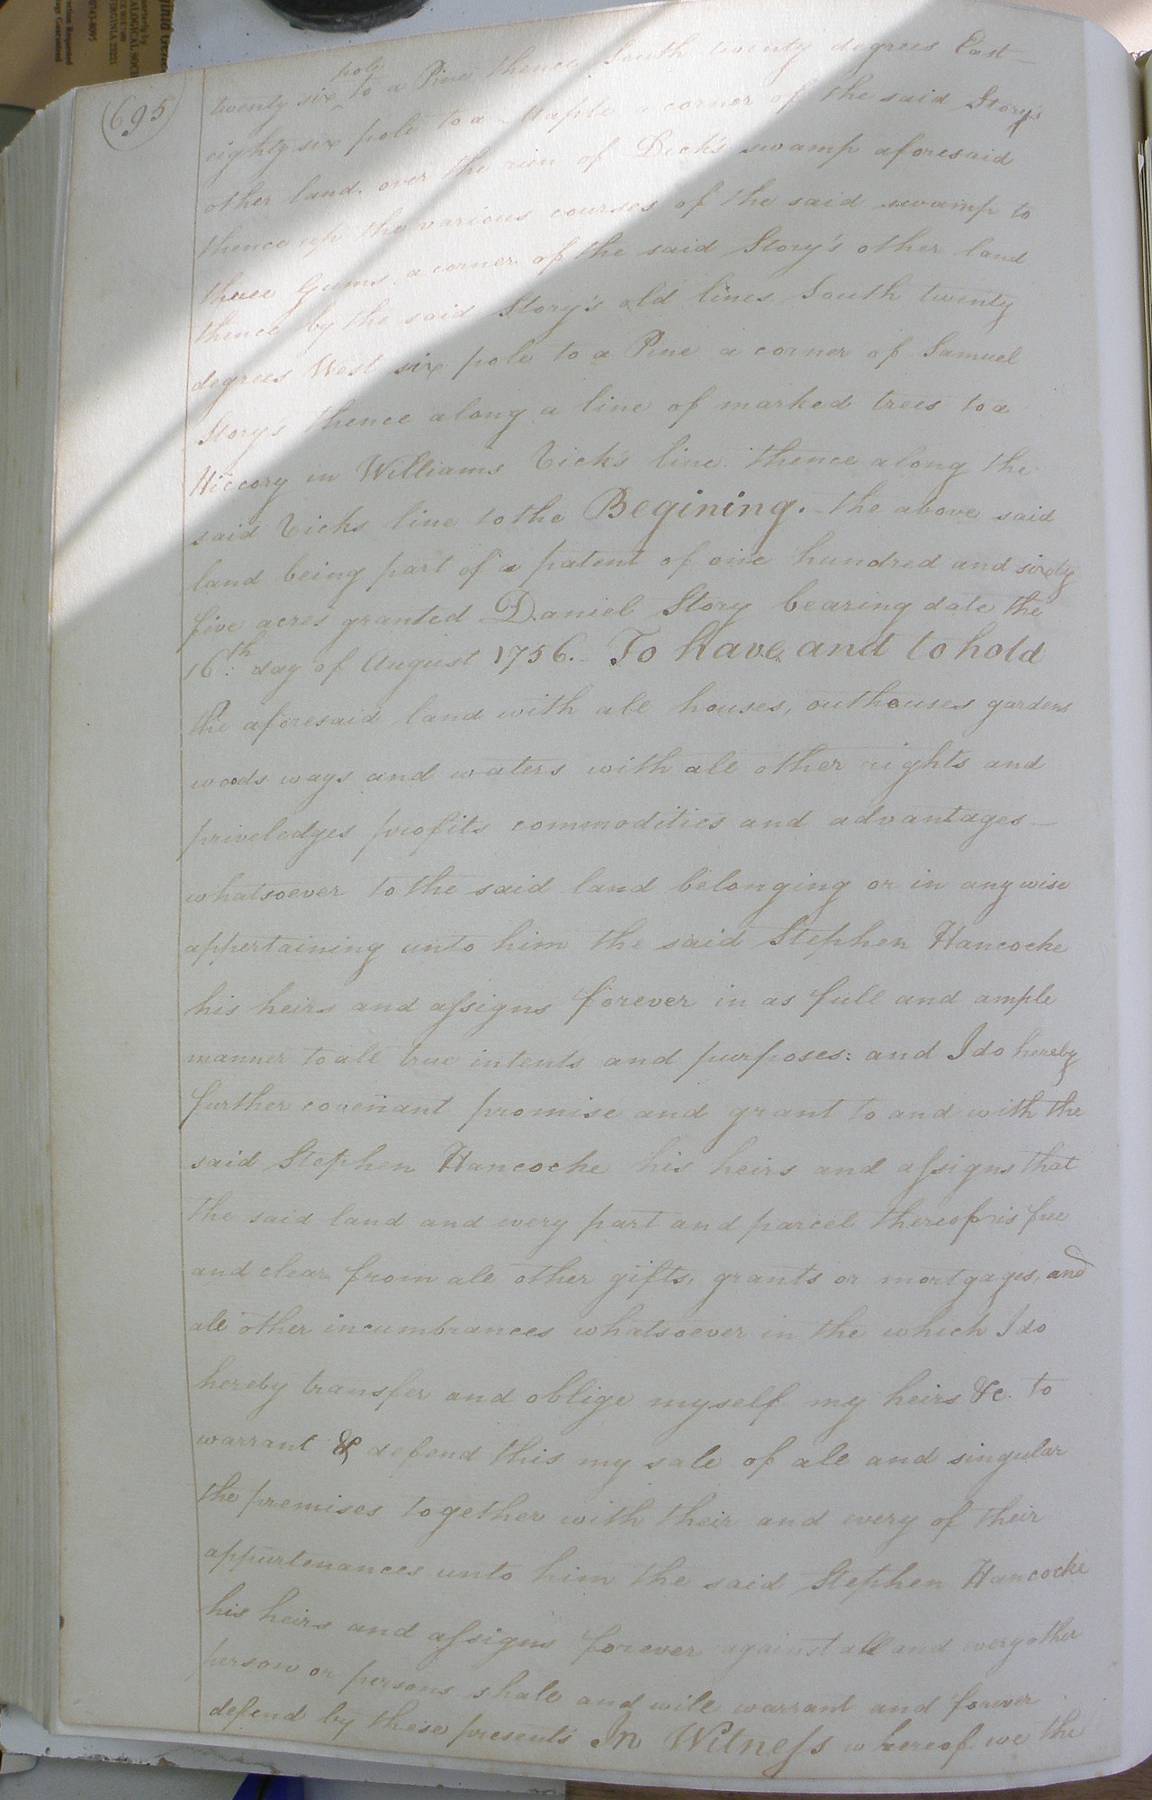 (695)
twenty six pole to a Pine thence South twenty degrees East
eighty six pole to a Maple a corner of the said Story's
other land over the run of Beck's swamp aforesaid
thence up the various courses of the said swamp to
three Gums a corner of the said Story's other land
thence by the said Story's old lines South twenty
degrees West six pole to a Pine a corner of Samuel
Story's thence along a line of marked trees to a
Hiccory in Williams line thence along the
said line to the Begining. the above said
land being part of a patent of one hundred and sixty
five acres granted Daniel Story bearing date the
16th: day of August 1756. To have and to hold
the aforesaid land with all houses, outhouses gardens
woods ways and waters with all other rights and
priveledges profits commodities and advantages
whatsoever to the said land belonging or in any wise
appertaining unto him the said Stephen Hancocke
his heirs and assigns forever in as full and ample
manner to all true intents and purposes: and I do hereby
further covenant promise and grant to and with the
said Stephen Hancocke his heirs and assigns that
the said land and every part and parcel thereof is free
and clear from all other gifts, grants or mortgages, and
all other incumbrances whatsoever in the which I do
hereby transfer and oblige myself my heirs &c. to
warrant & defend this my sale of all and singular
the premises together with their and every of their
appurtenances unto him the said Stephen Hancocke
his heirs and assigns forever against all and every other
person or persons shall and will warrant and forever
defend by these presents In Witness whereof we the